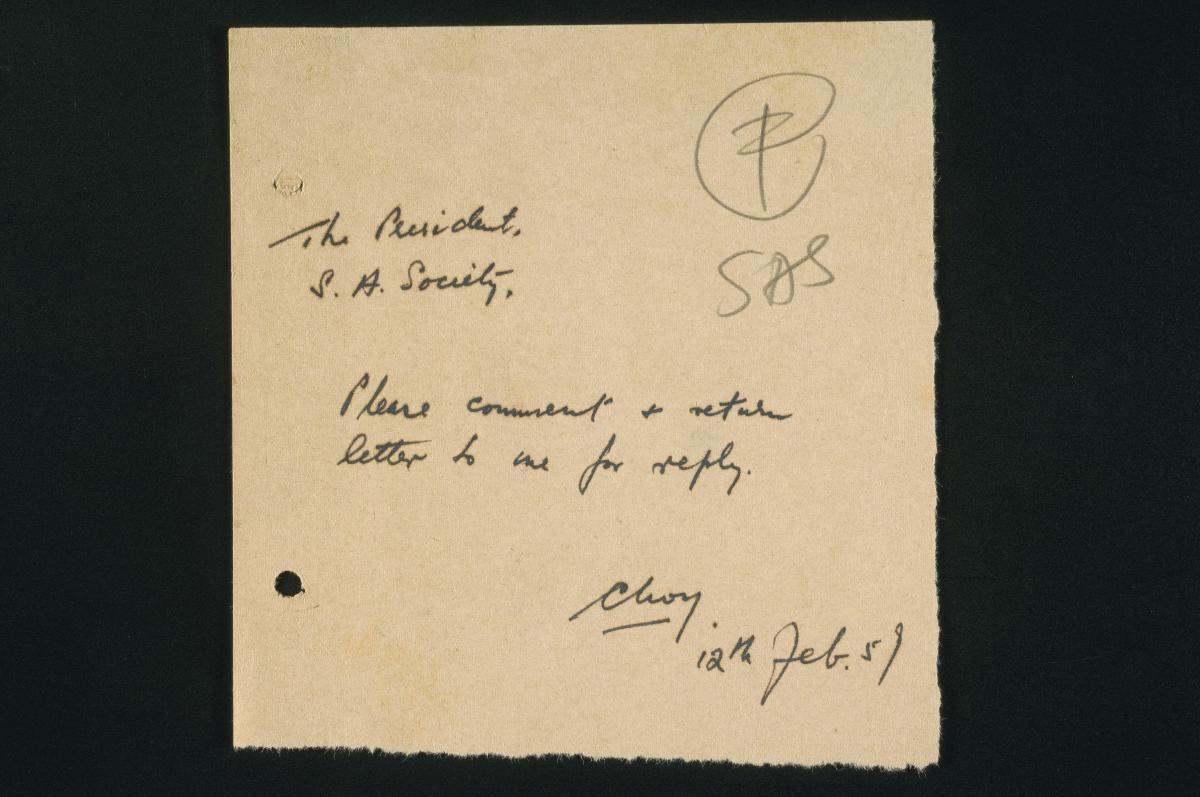 P
SAS
The President,
S. A. Society,
Please comment & return
letter to me for reply.
Choy
12th Feb. 59